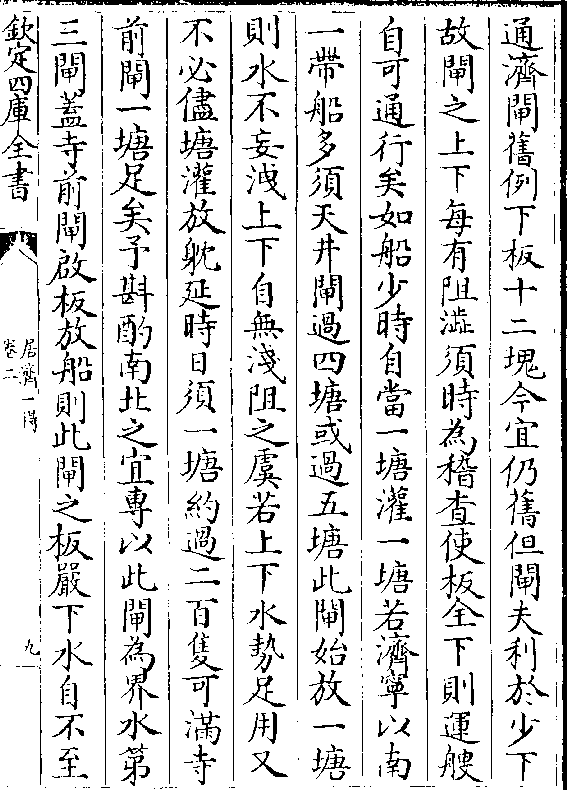 通濟閘舊例下板十二塊今宜仍舊但閘夫利於少下
故閘之上下每有阻澁須時為稽查使板全下則運艘
自可通行矣如船少時自當一塘灌一塘若濟寧以南
一帶船多須天井閘過四塘或過五塘此閘始放一塘
則水不妄洩上下自無淺阻之虞若上下水勢足用又
不必儘塘灌放躭延時日須一塘約過二百隻可滿寺
前閘一塘足矣予斟酌南北之宜專以此閘為界水第
三閘蓋寺前閘啟板放船則此閘之板嚴下水自不至
欽定四庫全書
居濟一得
卷二
九